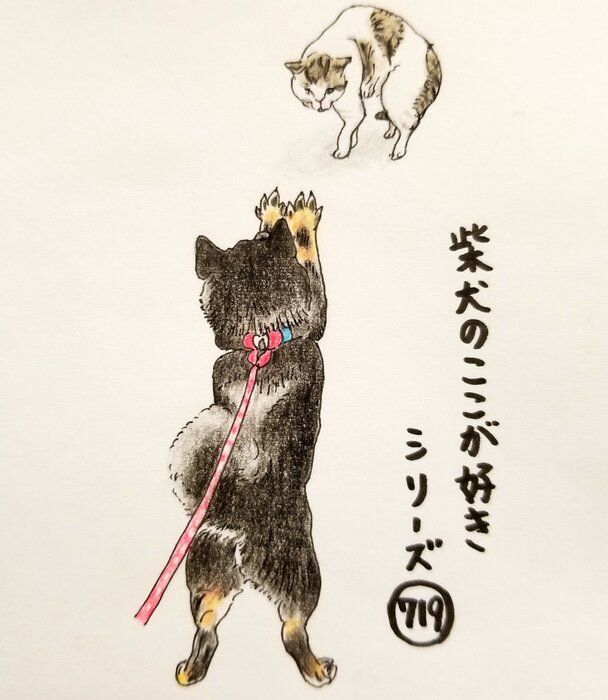 柴犬のここが好き
シリーズ
719